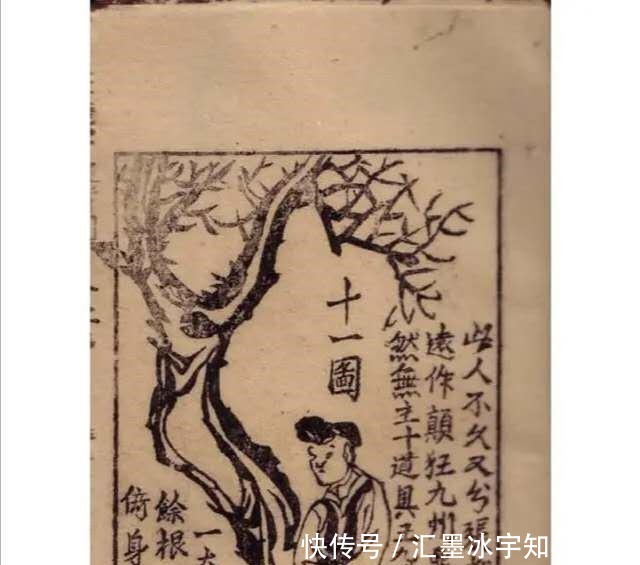 十一圖
此人不久又兮張
遠作顛狂九州
然無主十道具
一大
餘根
俯身
快传号／汇墨冰宇知